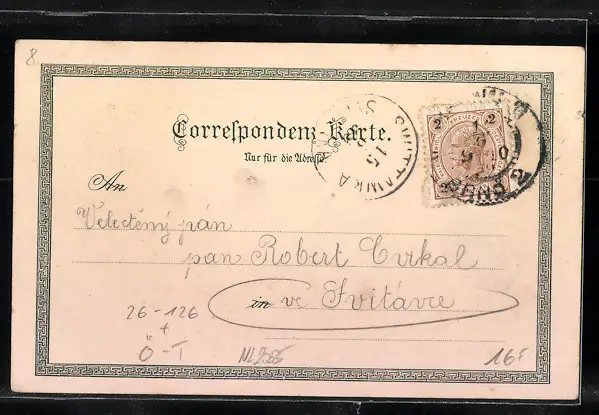 8
Correspondenz-Karte.
Nur für die Adresse.
SWITTAWKA
15
2 KREUZER 2
BRNO 2
An
Velectěný pán
pan Robert Cvrkal
in ve Svitávce
26-126
+
Ö-T
16€